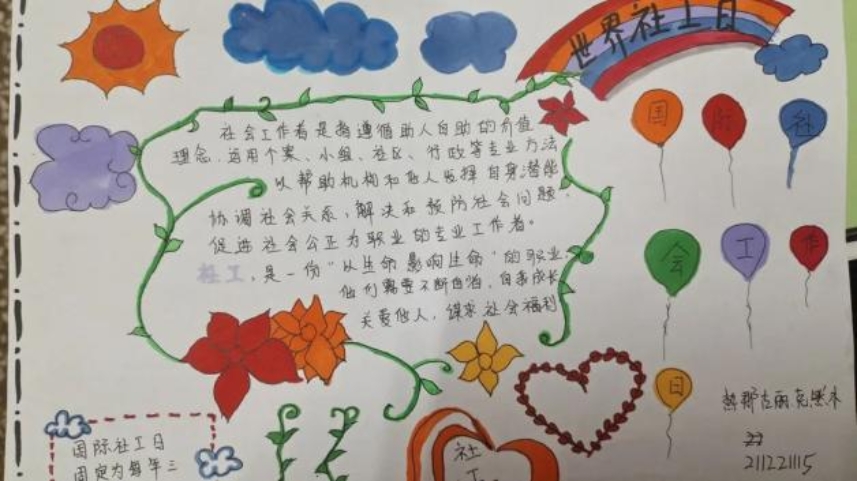 世界社工日
社会工作者是指遵循助人自助的价值
理念、运用个案、小组、社区、行政等专业方法
以帮助机构和他人发挥自身潜能
协调社会关系,解决和预防社会问题,
促进社会公正为职业的专业工作者。
社工,是一份“从生命影响生命”的职业,
他们需要不断自省,自我成长
关爱他人,谋求社会福利
国 际 社
会 工 作
日
热那古丽.克热木
211221115
国际社工日
固定为每年三
社
工